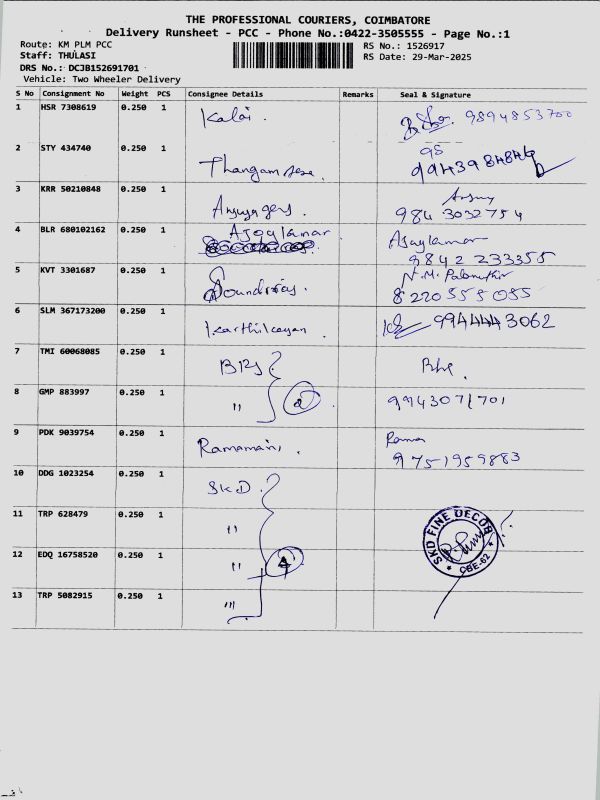 THE PROFESSIONAL COURIERS, COIMBATORE
Delivery Runsheet - PCC - Phone No.:0422-3505555 - Page No.:1
Route: KM PLM PCC RS No.: 1526917
Staff: THULASI RS Date: 29-Mar-2025
DRS No.: DCJB152691701
Vehicle: Two Wheeler Delivery
S No Consignment No Weight PCS Consignee Details Remarks Seal & Signature
1 HSR 7308619 0.250 1 Kalai. 9894853700
2 STY 434740 0.250 1 98
9943984846
3 KRR 50210848 0.250 1
984 3032754
4 BLR 680102162 0.250 1 Ajaykumar Ajaykumar
9842 233355
5 KVT 3301687 0.250 1
8220555055
6 SLM 367173200 0.250 1 Karthikeyan 9944443062
7 TMI 60068085 0.250 1
8 GMP 883997 0.250 1 " 2 9943071701
9 PDK 9039754 0.250 1 Ramamani. Rama
9751959883
10 DDG 1023254 0.250 1 SKD
11 TRP 628479 0.250 1 " SKD FINE DECOR
12 EDQ 16758520 0.250 1 " 4 * CBE-62 *
13 TRP 5082915 0.250 1 "